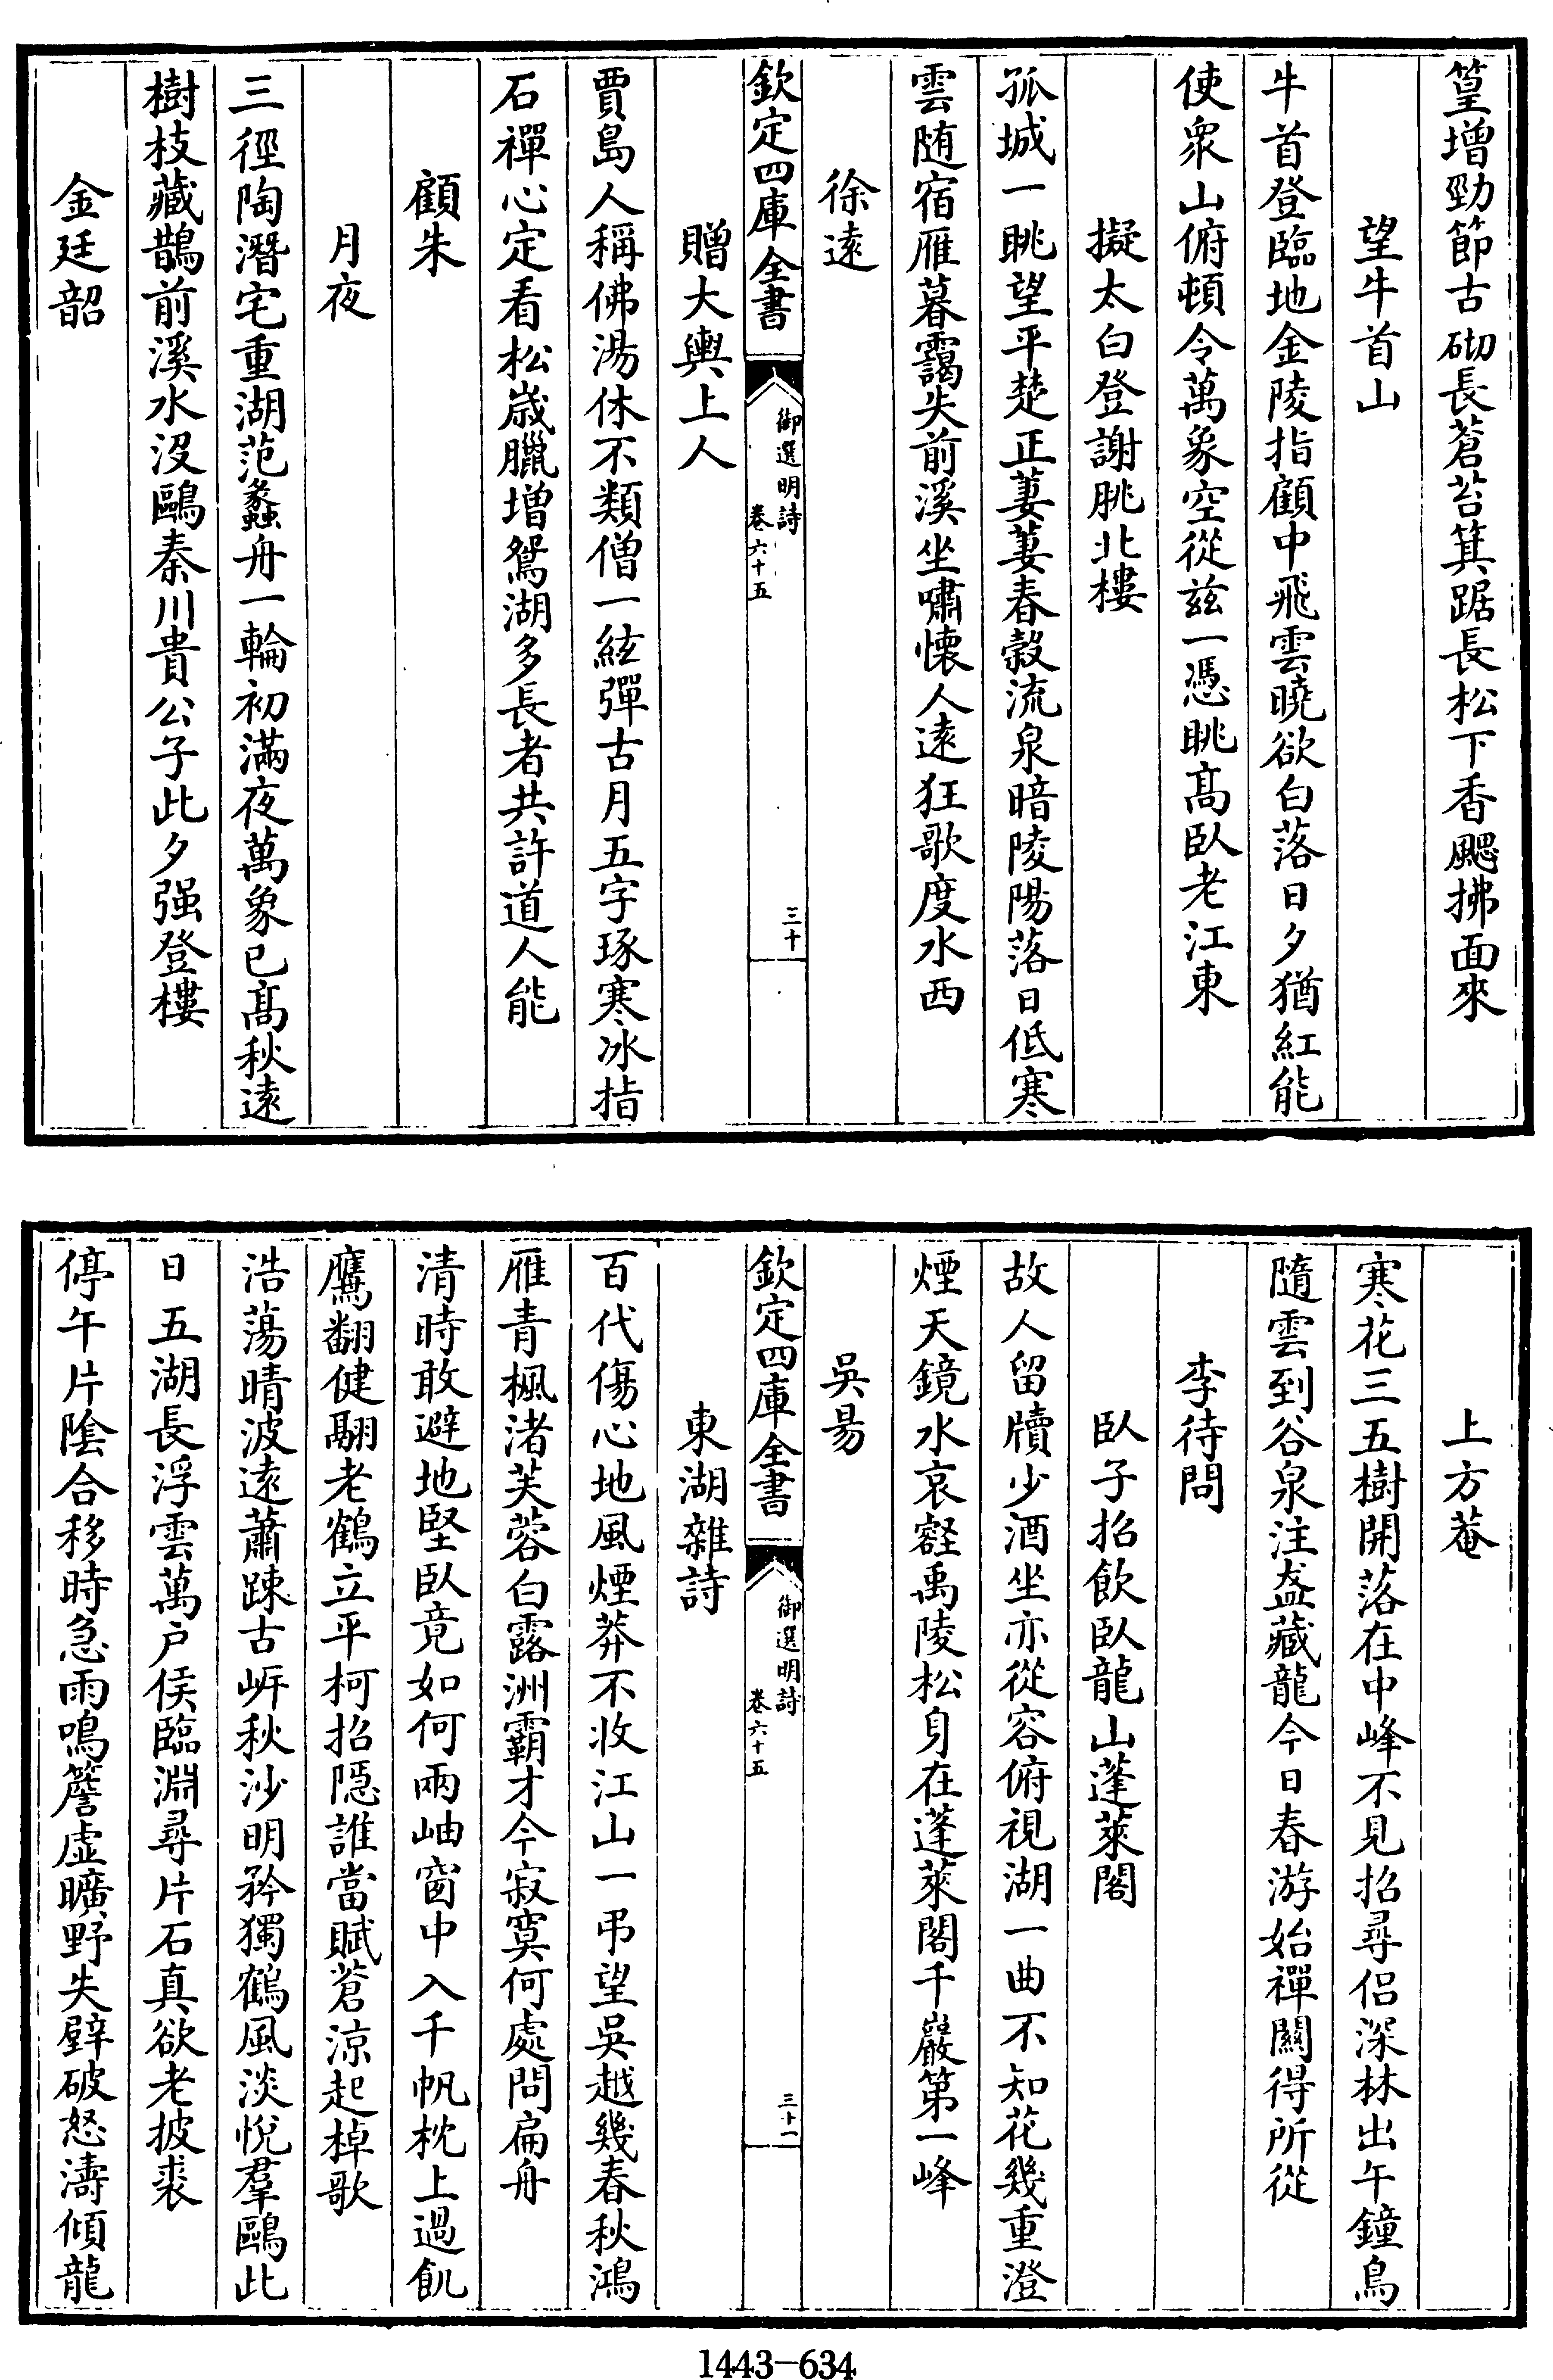 篁增勁節古砌長蒼苔箕踞長松下香颸拂面來
望牛首山
牛首登臨地金陵指顧中飛雲曉欲白落日夕猶紅能
使衆山俯頓令萬象空從兹一憑眺髙臥老江東
擬太白登謝朓北樓
孤城一眺望平楚正萋萋春穀流泉暗陵陽落日低寒
雲随宿雁暮靄失前溪坐嘯懷人遠狂歌度水西
徐遠
欽定四庫全書
御選明詩
卷六十五
三十
贈大輿上人
賈島人稱佛湯休不類僧一絃彈古月五字琢寒冰指
石禪心定看松歲臘增鴛湖多長者共許道人能
顧朱
月夜
三徑陶潛宅重湖范蠡舟一輪初滿夜萬象已髙秋遠
樹枝藏鵲前溪水没鷗秦川貴公子此夕强登樓
金廷韶
上方菴
寒花三五樹開落在中峰不見招尋侣深林出午鐘鳥
隨雲到谷泉注盋藏龍今日春游始禪關得所從
李待問
臥子招飲臥龍山蓬萊閣
故人留牘少酒坐亦從容俯視湖一曲不知花幾重澄
煙天鏡水哀壑禹陵松身在蓬萊閣千巖第一峰
吳昜
欽定四庫全書
御選明詩
卷六十五
三十一
東湖雜詩
百代傷心地風煙莽不收江山一弔望吳越幾春秋鴻
雁青楓渚芙蓉白露洲霸才今寂寞何處問扁舟
清時敢避地堅臥竟如何兩岫窗中入千帆枕上過飢
鷹翻健翮老鶴立平柯招隱誰當賦蒼涼起棹歌
浩蕩晴波遠蕭踈古㟁秋沙明矜獨鶴風淡悅羣鷗此
日五湖長浮雲萬户侯臨淵尋片石真欲老披裘
停午片陰合移時急雨鳴簷虛曠野失壁破怒濤傾龍
1443-634